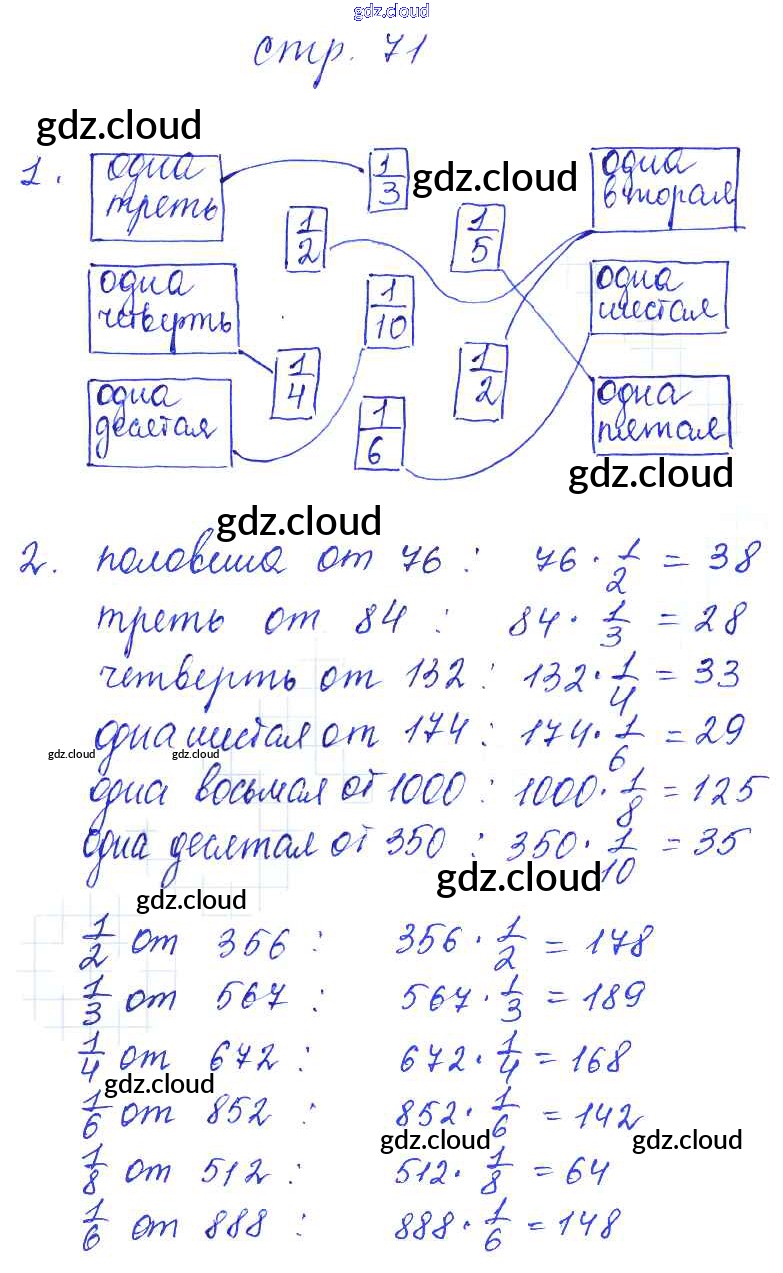 gdz.cloud
стр. 71
gdz.cloud
1. одна треть
1/3
gdz.cloud
одна вторая
1/2
1/5
одна четверть
1/10
одна шестая
1/4
1/2
одна десятая
1/6
одна пятая
gdz.cloud
gdz.cloud
2. половина от 76 : 76 · 1/2 = 38
треть от 84 : 84 · 1/3 = 28
четверть от 132 : 132 · 1/4 = 33
одна шестая от 174 : 174 · 1/6 = 29
gdz.cloud gdz.cloud
одна восьмая от 1000 : 1000 · 1/8 = 125
одна десятая от 350 : 350 · 1/10 = 35
gdz.cloud
gdz.cloud
1/2 от 356 : 356 · 1/2 = 178
1/3 от 567 : 567 · 1/3 = 189
1/4 от 672 : 672 · 1/4 = 168
gdz.cloud
1/6 от 852 : 852 · 1/6 = 142
gdz.cloud gdz.cloud
1/8 от 512 : 512 · 1/8 = 64
1/6 от 888 : 888 · 1/6 = 148